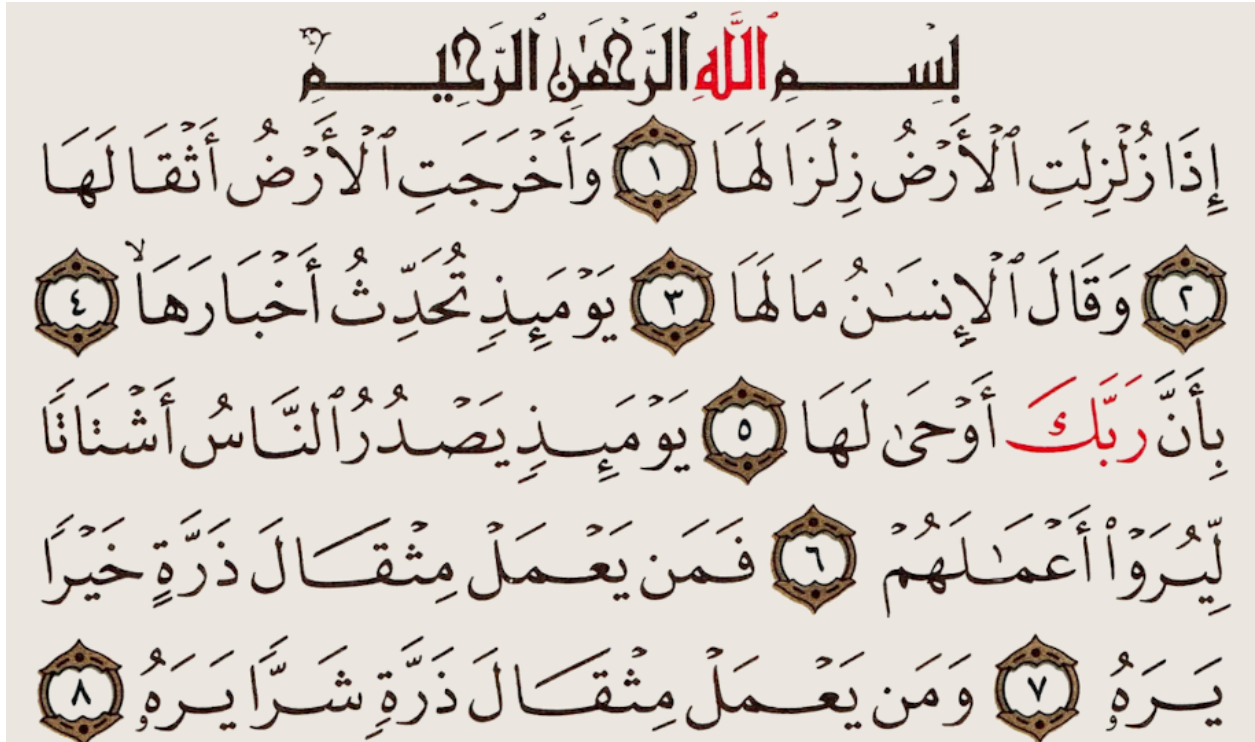 بِسْمِ ٱللَّهِ ٱلرَّحْمَٰنِ ٱلرَّحِيمِ
إِذَا زُلْزِلَتِ ٱلْأَرْضُ زِلْزَالَهَا ١ وَأَخْرَجَتِ ٱلْأَرْضُ أَثْقَالَهَا
٢ وَقَالَ ٱلْإِنسَٰنُ مَا لَهَا ٣ يَوْمَئِذٍ تُحَدِّثُ أَخْبَارَهَا ۙ ٤
بِأَنَّ رَبَّكَ أَوْحَىٰ لَهَا ٥ يَوْمَئِذٍ يَصْدُرُ ٱلنَّاسُ أَشْتَاتًا
لِّيُرَوْا۟ أَعْمَٰلَهُمْ ٦ فَمَن يَعْمَلْ مِثْقَالَ ذَرَّةٍ خَيْرًا
يَرَهُۥ ٧ وَمَن يَعْمَلْ مِثْقَالَ ذَرَّةٍ شَرًّا يَرَهُۥ ٨